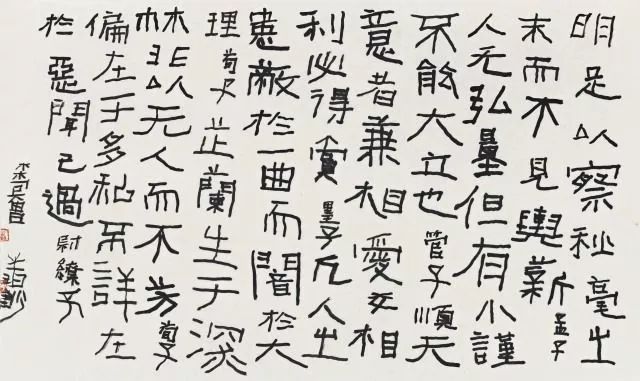 明足以察秋毫之
末而不見輿薪孟子
人无弘量但有小謹
不能大立也管子順天
意者兼相愛交相
利必得賞墨子凡人之
患蔽於一曲而闇於大
理荀子芷蘭生于深
林非以无人而不芳荀子
偏在于多私不詳在
於惡聞己過尉繚子